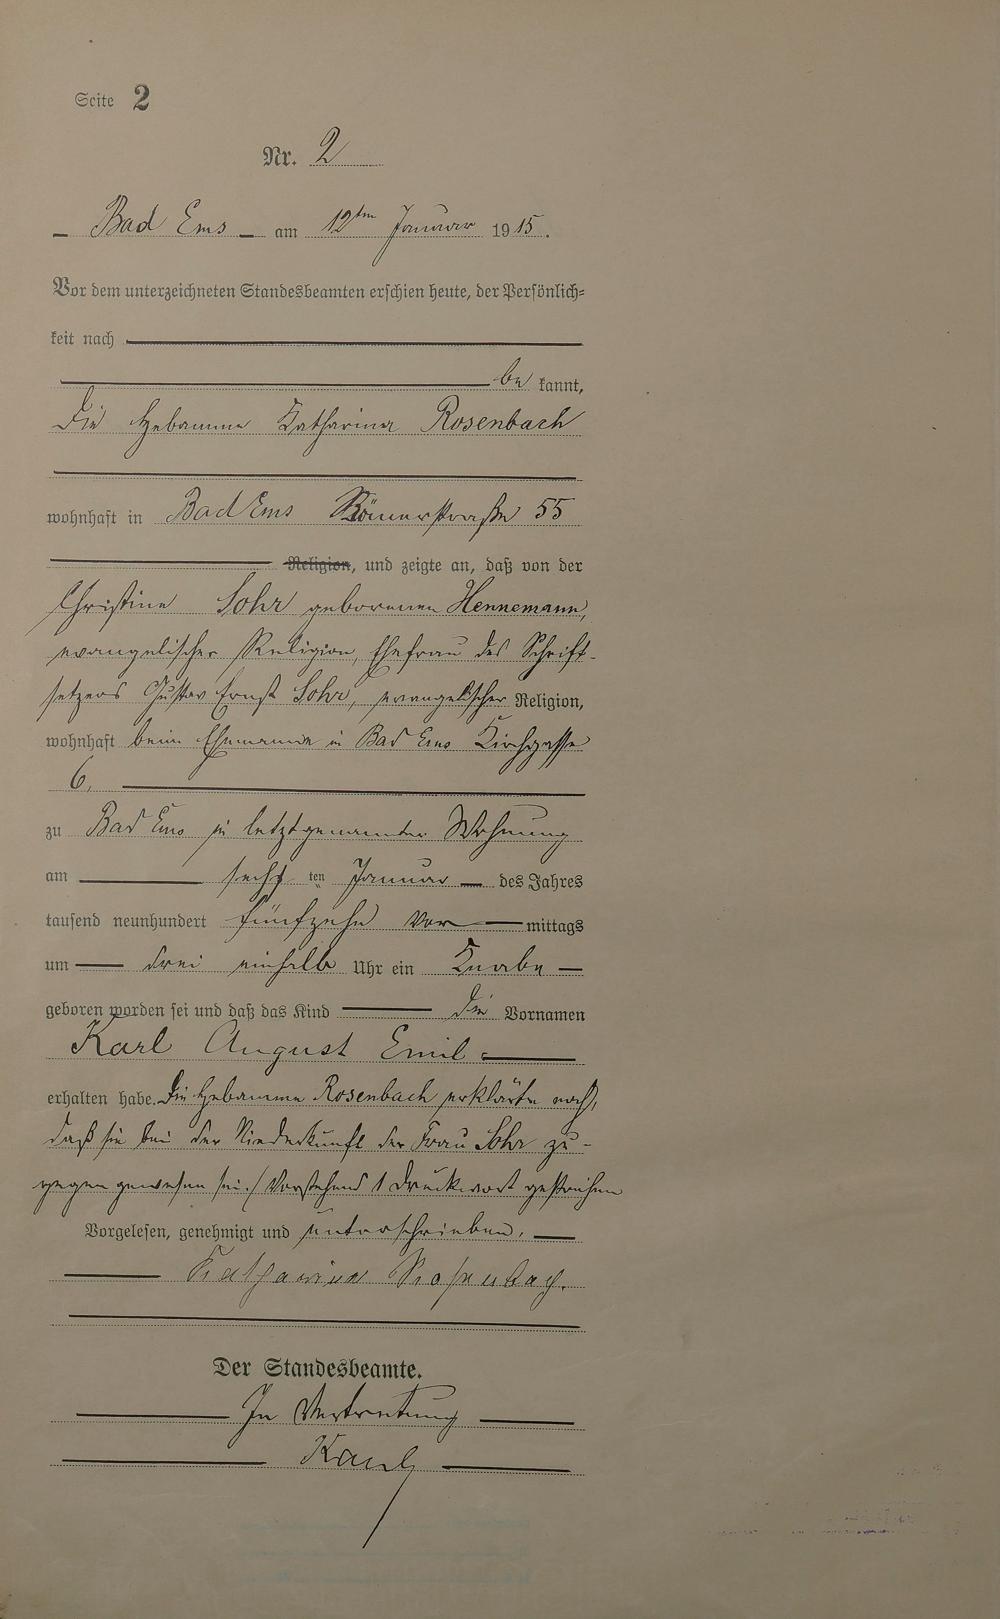 Seite 2
Nr. 2
Bad Ems am 12ten Januar 1915.
Vor dem unterzeichneten Standesbeamten erschien heute, der Persönlich-
keit nach
be kannt,
die Hebamme Katharina Rosenbach
wohnhaft in Bad Ems Römerstraße 55
Religion, und zeigte an, daß von der
Christine Sohr geborenen Hennemann,
evangelischer Religion, Ehefrau des Schrift-
setzers Gustav Ernst Sohr, evangelischer Religion,
wohnhaft beim Ehemanne in Bad Ems Kirchgasse
6,
zu Bad Ems in letztgenannter Wohnung
am sechs ten Januar des Jahres
tausend neunhundert fünfzehn Vor mittags
um drei einhalb Uhr ein Knabe
geboren worden sei und daß das Kind die Vornamen
Karl August Emil
erhalten habe. Die Hebamme Rosenbach erklärte noch,
daß sie bei der Niederkunft der Frau Sohr zu-
gegen gewesen sei. / Vorstehend 1 Druckwort gestrichen
Vorgelesen, genehmigt und unterschrieben.
Katharina Rosenbach.
Der Standesbeamte.
In Vertretung